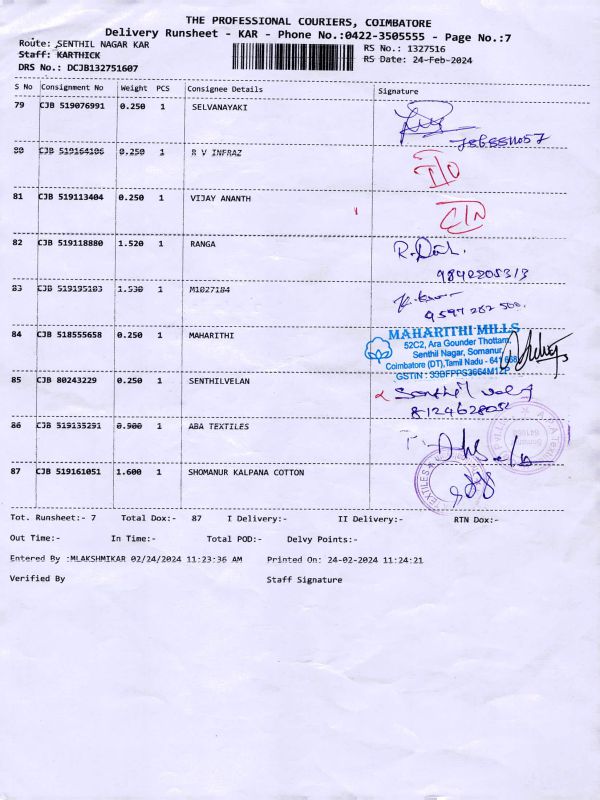 THE PROFESSIONAL COURIERS, COIMBATORE
Delivery Runsheet - KAR - Phone No.:0422-3505555 - Page No.:7
Route: SENTHIL NAGAR KAR
RS No.: 1327516
Staff: KARTHICK
RS Date: 24-Feb-2024
DRS No.: DCJB132751607
S No Consignment No Weight PCS Consignee Details Signature
79 CJB 519076991 0.250 1 SELVANAYAKI
80 CJB 519164106 0.250 1 R V INFRAZ
81 CJB 519113404 0.250 1 VIJAY ANANTH
82 CJB 519118880 1.520 1 RANGA
9842205313
83 CJB 519195103 1.530 1 M1027184
9597 282 500.
84 CJB 518555658 0.250 1 MAHARITHI
MAHARITHI MILLS
52C2, Ara Gounder Thottam,
Senthil Nagar, Somanur,
Coimbatore (DT),Tamil Nadu - 641 668
GSTIN : 33BFPPS3664M1ZP
85 CJB 80243229 0.250 1 SENTHILVELAN
Senthil Velan
86 CJB 519135291 0.900 1 ABA TEXTILES
87 CJB 519161051 1.600 1 SHOMANUR KALPANA COTTON
Tot. Runsheet:- 7 Total Dox:- 87 I Delivery:- II Delivery:- RTN Dox:-
Out Time:- In Time:- Total POD:- Delvy Points:-
Entered By :MLAKSHMIKAR 02/24/2024 11:23:36 AM Printed On: 24-02-2024 11:24:21
Verified By Staff Signature